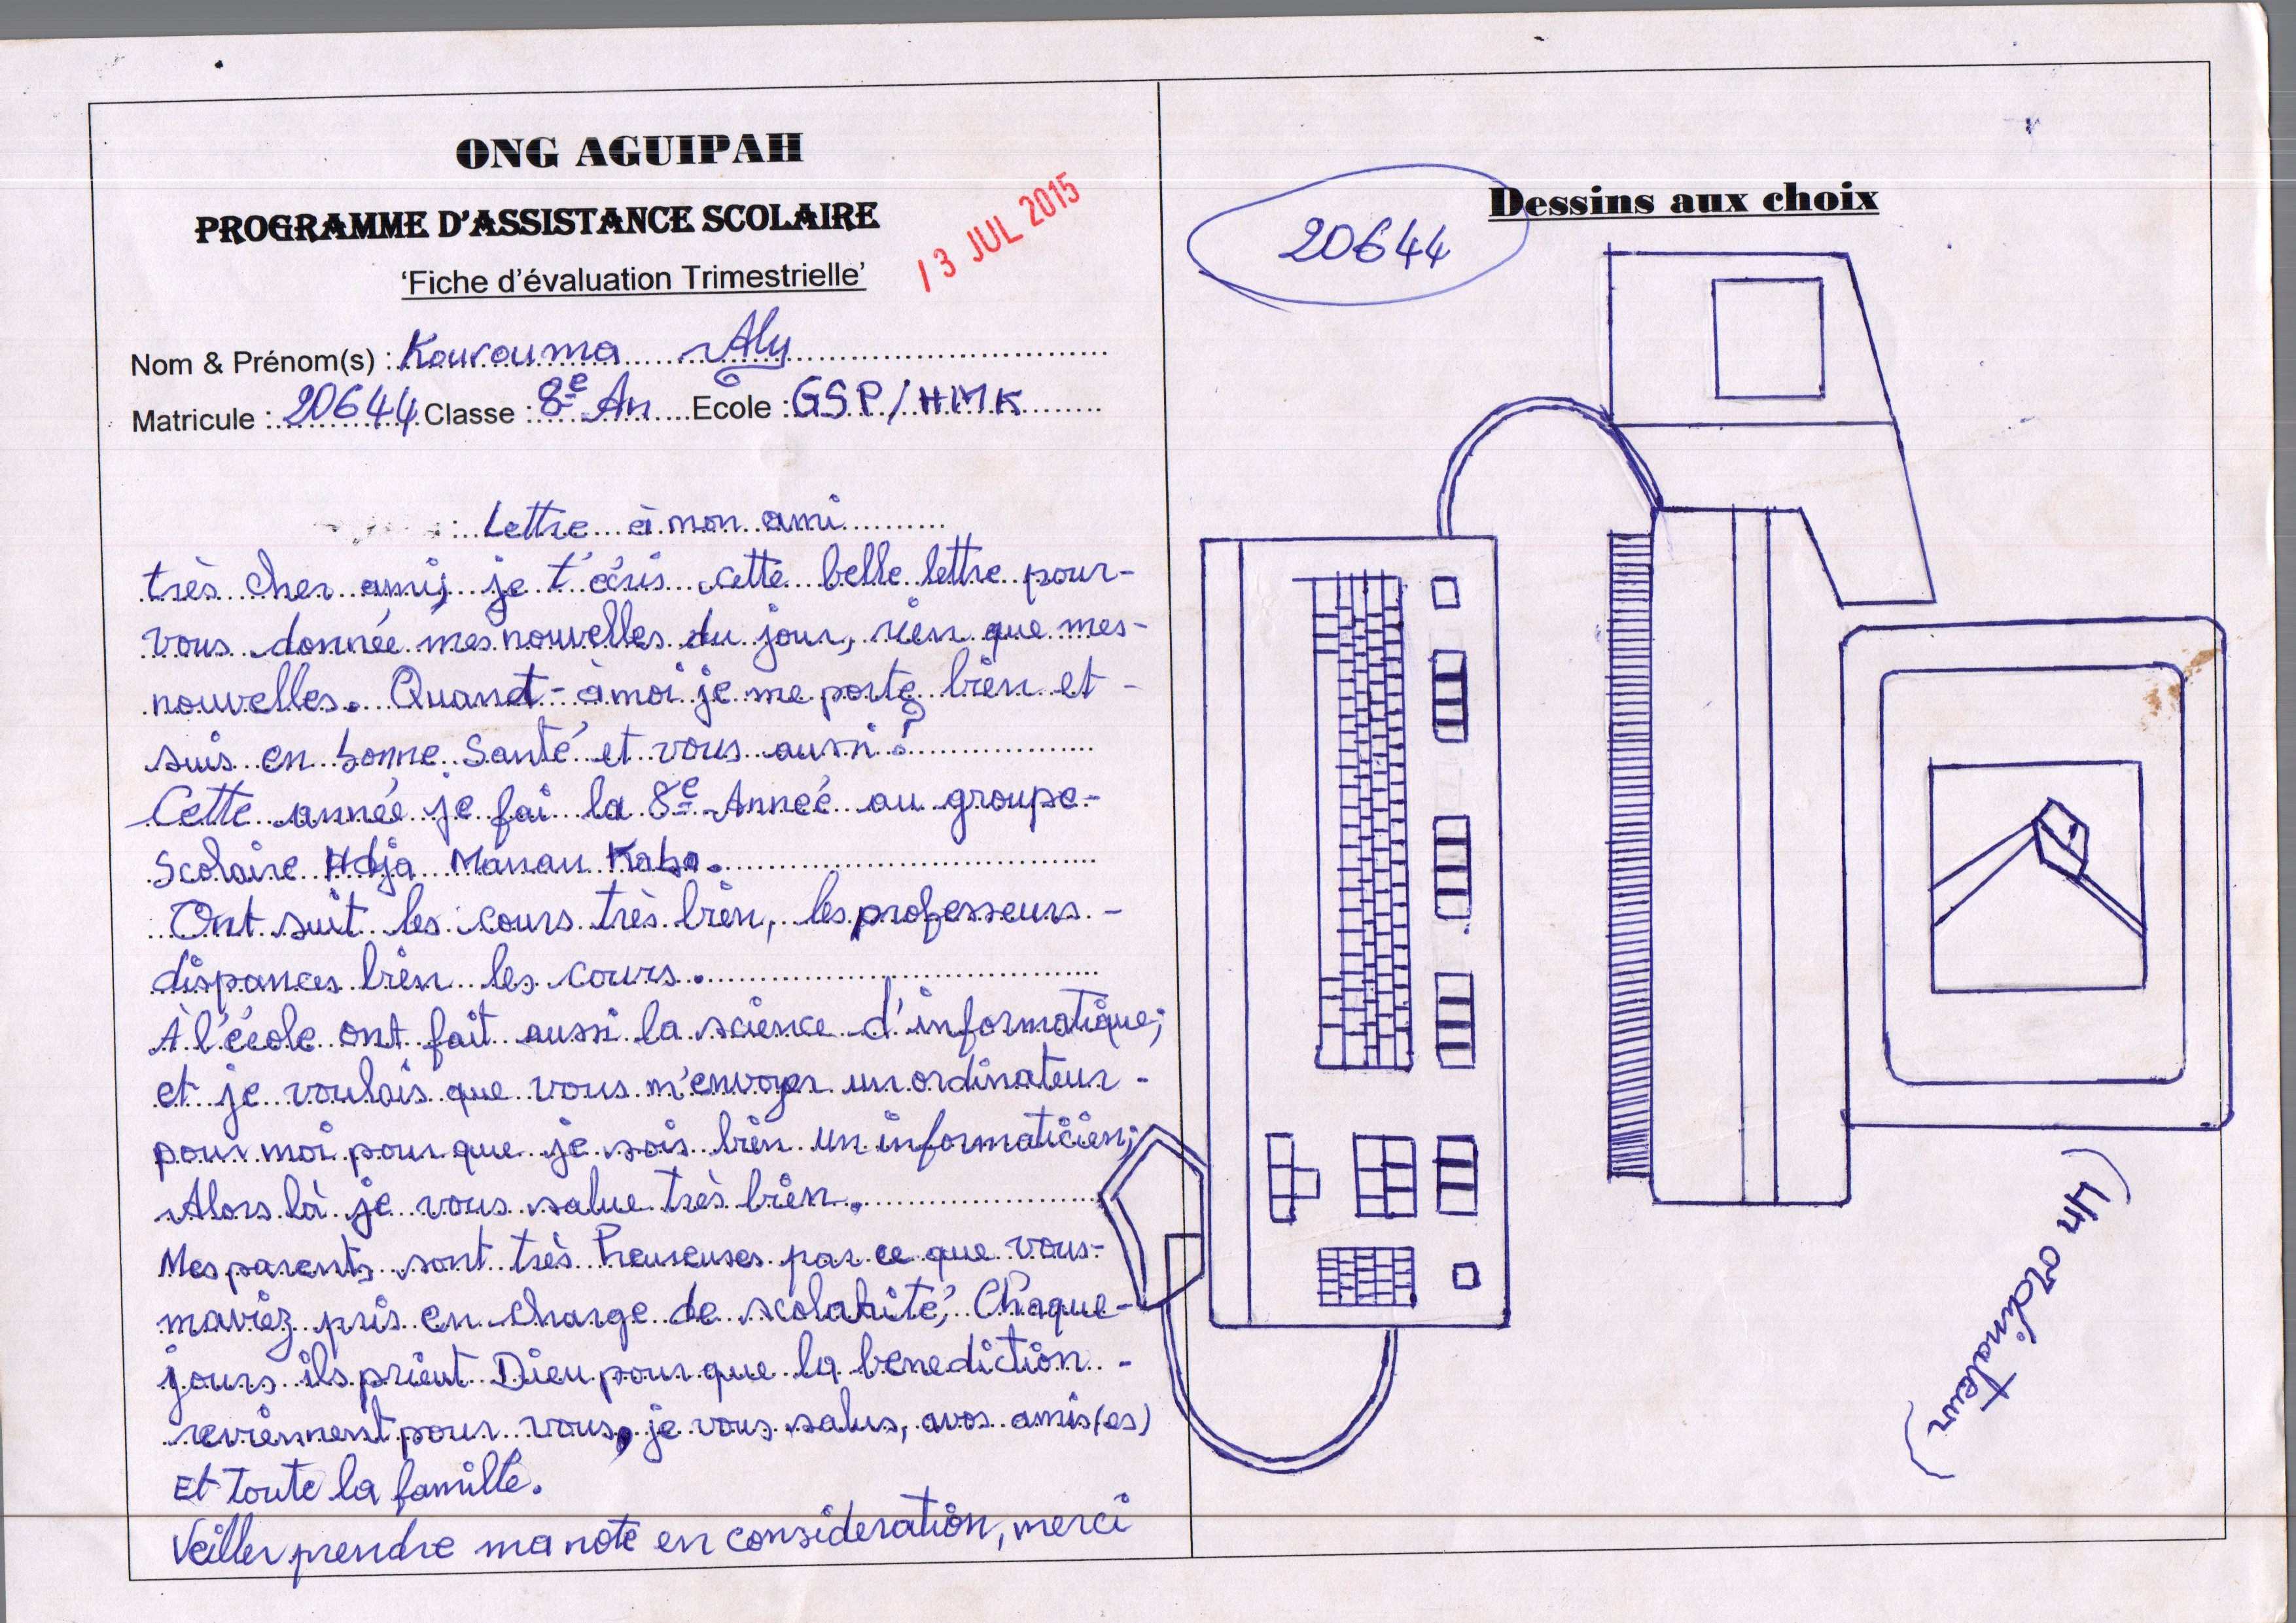 ONG AGUIPAH
PROGRAMME D'ASSISTANCE SCOLAIRE
'Fiche d'évaluation Trimestrielle'
13 JUL 2015
Nom & Prénom(s) : Kourouma Aly
Matricule : 20644 Classe : 8e An Ecole : GSP/HMK
: Lettre à mon ami
très cher ami, je t'écris cette belle lettre pour-
vous donnée mes nouvelles du jour, rien que mes-
nouvelles. Quant-à moi je me porte bien et -
suis en bonne Santé et vous aussi?
Cette année je fai la 8e Année au groupe-
Scolaire Hdja Manan Kaba.
Ont suit les cours très bien, les professeurs -
dispances bien les cours.
À l'école ont fait aussi la science d'informatique;
et je voulais que vous m'envoyer un ordinateur -
pour moi pour que je sois bien un informaticien;
Alors là je vous salue très bien.
Mes parents sont très heureuses par ce que vous-
maviez pris en charge de scolarité, Chaque-
jours ils prient Dieu pour que la benediction -
reviennent pour vous, je vous salus, avos amis(es)
Et toute la famille.
Veiller prendre ma note en consideration, merci
Dessins aux choix
20644
(Un ordinateur)